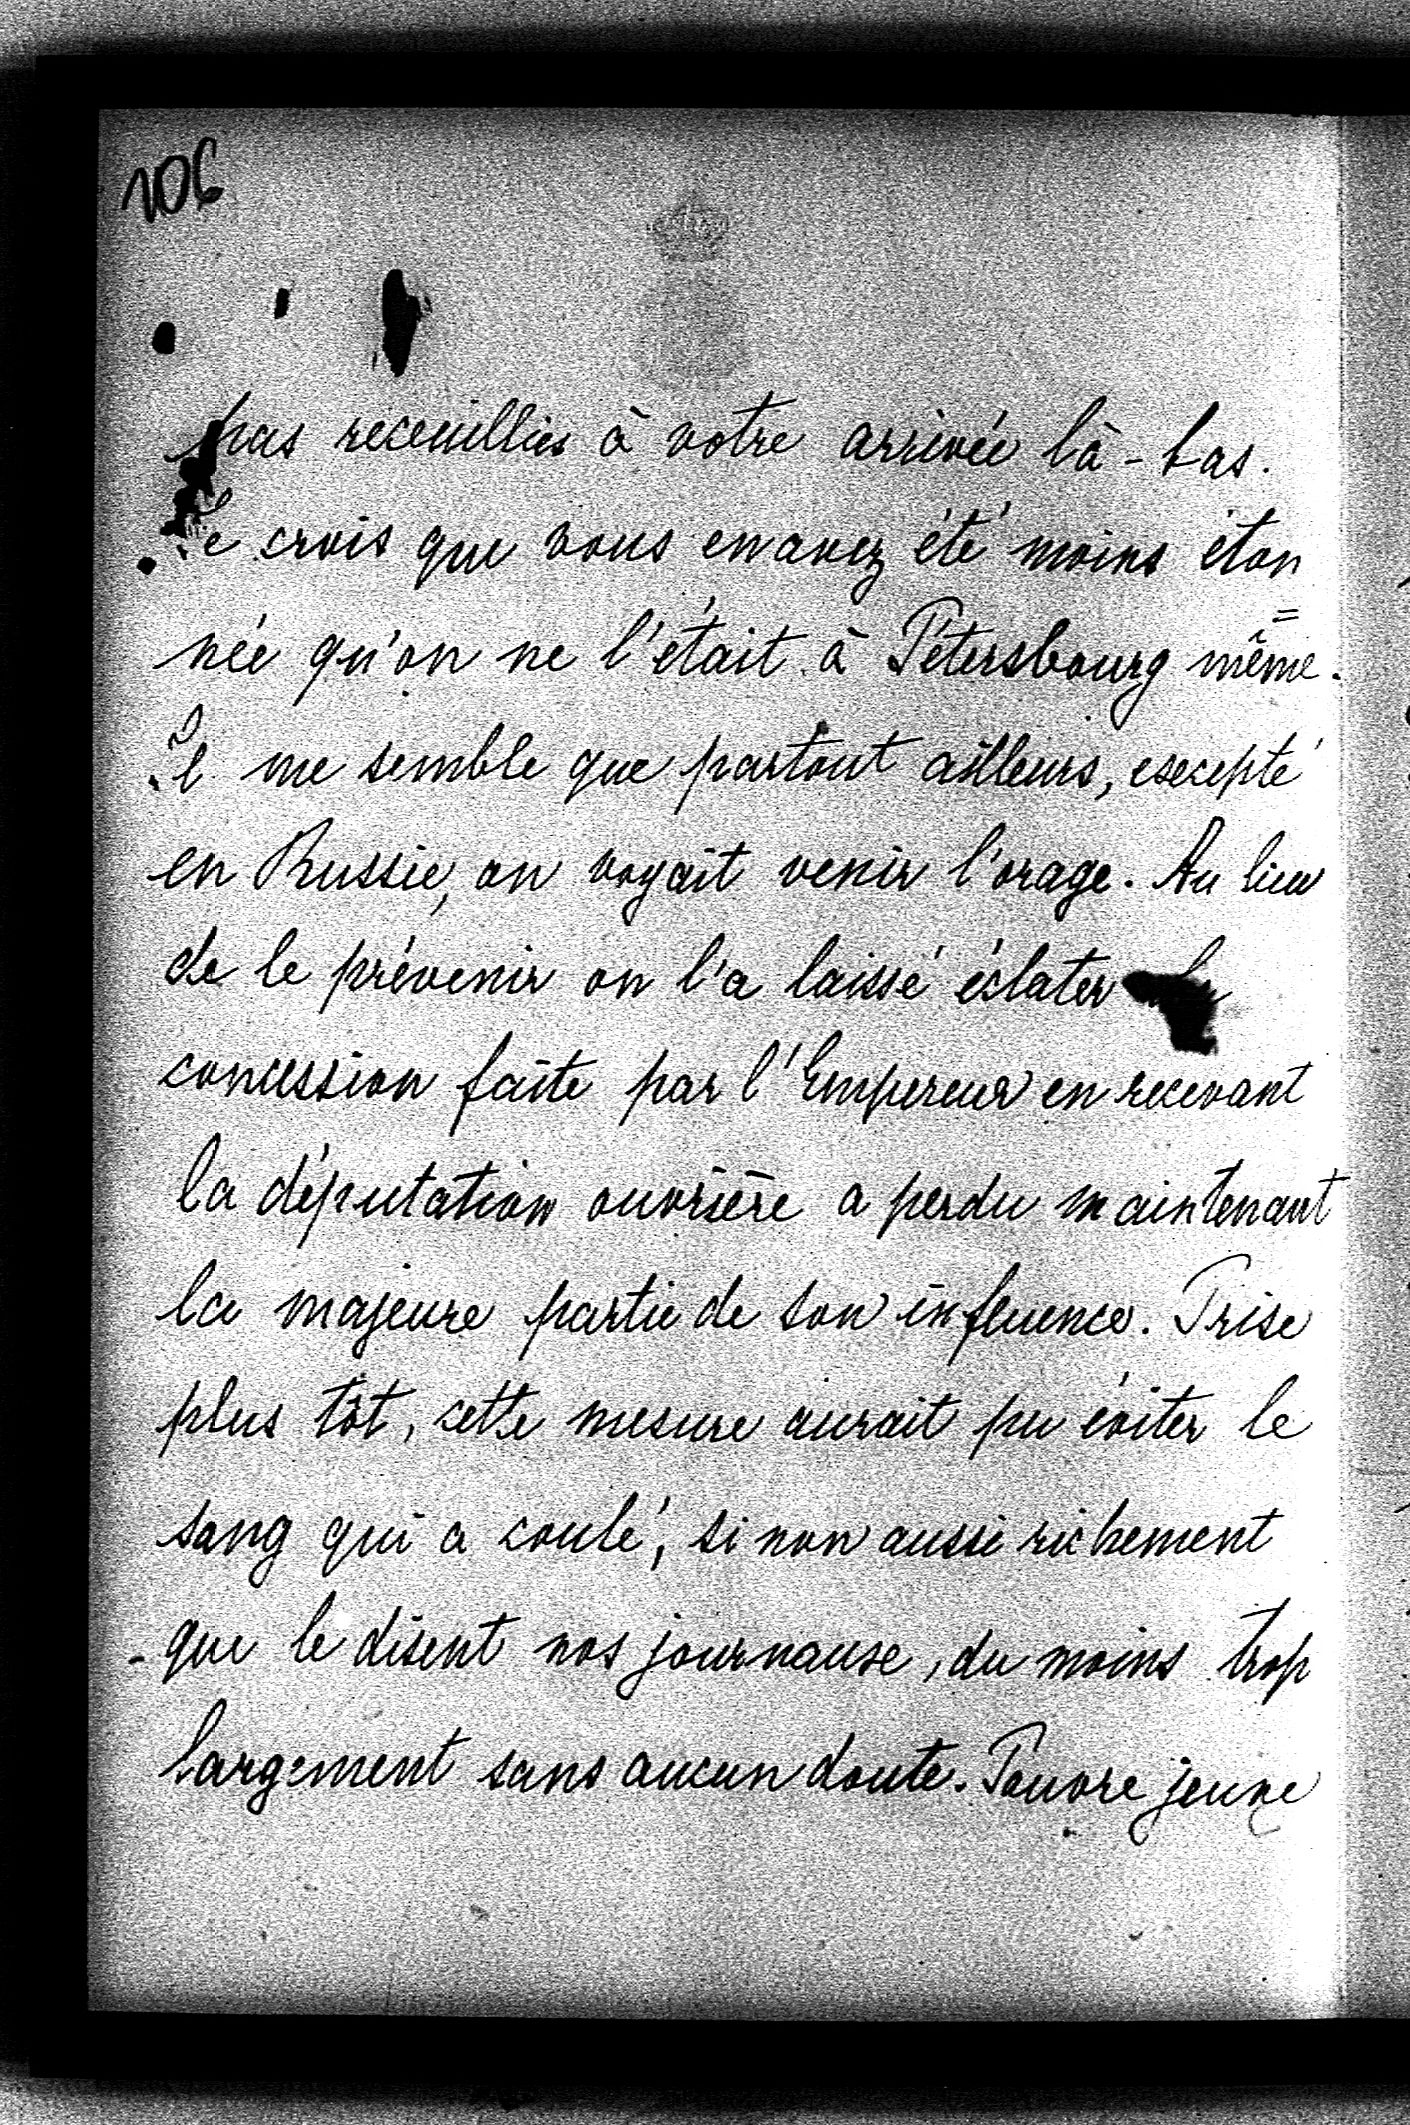 106
pas receuillies à votre arrivée là-bas.
Je crois que vous en avez été moins éton
=
née qu'on ne l'était à Pétersbourg même.
Il me semble que partout ailleurs, excepté
en Russie, on voyait venir l'orage. Au lieu
de le prévenir on l'a laissé éclater
concession faite par l'Empereur en recevant
la députation ouvrière a perdu maintenant
la majeure partie de son influence. Prise
plus tôt, cette mesure aurait pu éviter le
sang qui a coulé, si non aussi richement
que le disent nos journaux, du moins trop
largement sans aucun doute. Pauvre jeune